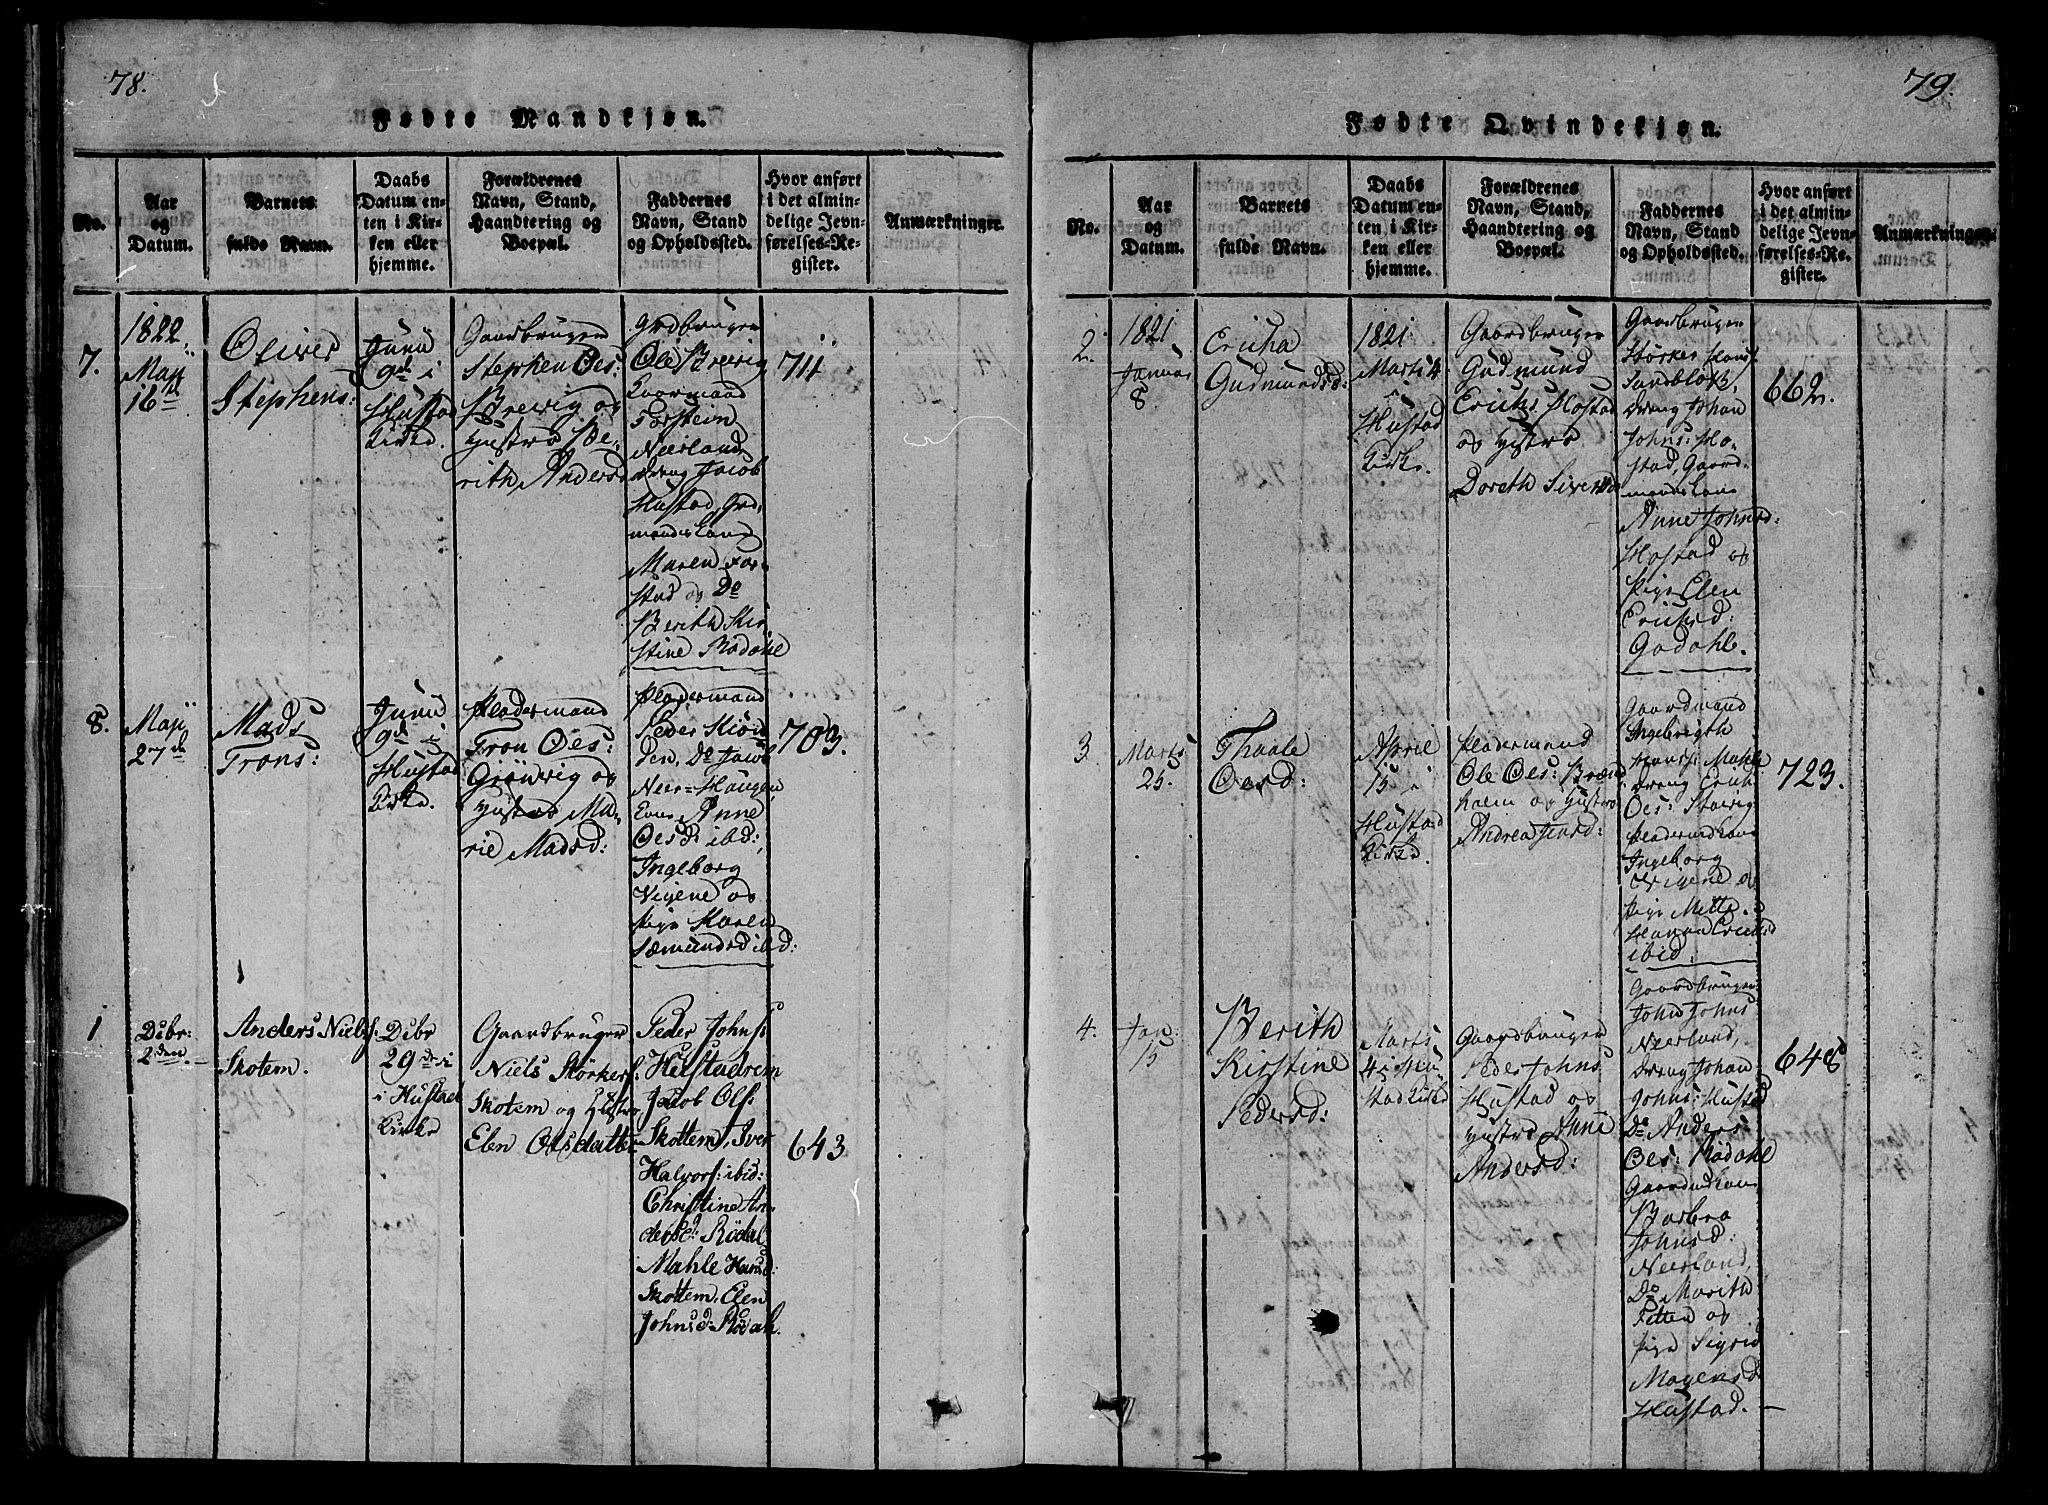 78.
Fødte Mandkjøn.
No.
Aar
og
Datum.
Barnets
fulde Navn.
Daabs
Datum en-
ten i Kir-
ken eller
hjemme.
Forældrenes
Navn, Stand,
Haandtering og
Boepæl.
Faddernes
Navn, Stand
og Opholdssted.
Hvor anført
i det almin-
delige Jevn-
førelses-Re-
gister.
Anmærkninger.
7.
1822.
Maji
16de
Oliver
Stephens:
Junii
9de i
Hustad
Kirke.
Gaardbruger
Stephen Oes:
Brevig og
Hustro Be-
rith Andersd
Grdbruger
Ole Brevig
Torstein
Neerland
Dreng Jacob
Hustad, Grd-
mandskone
Maren Tor-
stad og Do
Berith Kir-
stine Rødahl
711
8.
Maji
27de
Mads
Trons:
Junii
9de i
Hustad
Kirke.
Pladsmand
Tron Oes:
Grönvig og
Hustro Ma-
rie Madsd:
Pladsmand
Peder Skiön
den, Do Jacob
Neer=Haugen
Anne
Oesd: ibid:,
Ingeborg
Vigene og
Pige Karen
Sæmundsd ibd:
703.
1
Dcbr:
2den
Anders Niels:
Skotem.
Dcbr
29de i
i Hustad
Kirke
Gaardbruger
Niels Störkers:
Skotem og Hustro
Elen Olsdatter
Peder Johns:
Hustadrem
Jacob Ols:
Skottem, Iver
Halvors: ibid:
Christine An-
dersd: Rödal
Mahle Hansd:
Skottem, Elen
Johnsd: Rödah.
643
79.
Fødte Qvindekjøn.
No.
Aar
og
Datum.
Barnets
fulde Navn.
Daabs
Datum en-
ten i Kir-
ken eller
hjemme.
Forældrenes
Navn, Stand,
Haandtering og
Boepæl.
Faddernes
Navn, Stand
og Opholdssted.
Hvor anført
i det almin-
delige Jevn-
førelses-Re-
gister.
Anmærkninger.
2.
1821
Januar
8
Ericha
Gudmundsd:
1821
Marti 4
i
Hustad
Kirke.
Gaardbruger
Gudmund
Erichs: Hostad
og Hustro
Doreth Siversd
Gaardbruger
Störker Hans:
Sandblost,
Dreng Johan
Johns: Ho-
stad, Gaard-
mandskone
Anne Johnsd:
Hostad og
Pige Elen
Ericksd:
Gadahl.
662.
3
Marts
25.
Thaale
Oesd:
Aprile
15 i
Hustad
Kirke.
Pladsmand
Ole Oes: Brænd
holm og Hustro
Andrea Jensd:
Gaardmand
Ingebrigth
Hans: Mahle
Dreng Erich
Oes: Stavig
Pladsmdkone
Ingeborg
Vigene og
Pige Mette
Hanna Ericksd
ibid:
723.
4.
Jan:
15
Berith
Kirstine
Pedersd:
Marts
4 i Hu-
stad Kirke
Gaardbruger
Peder Johns
Hustad og
Hustro Anne
Andersd:
Gaardbruger
John Johns
Neerland,
Dreng Johan
Johns: Hustad
Do Anders
Oes: Rödahl
Gaardmdkone
Barbro
Johnsd:
Neerland,
Do Marith
Fetten og
Pige Sigrid
Mogensd
Hustad.
648